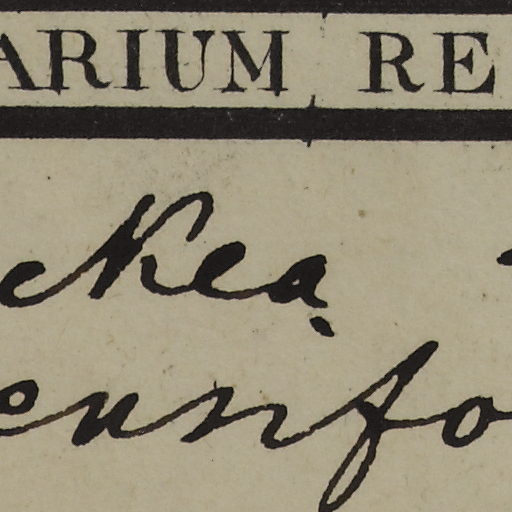 ARIUM RE
ckea
ennfo